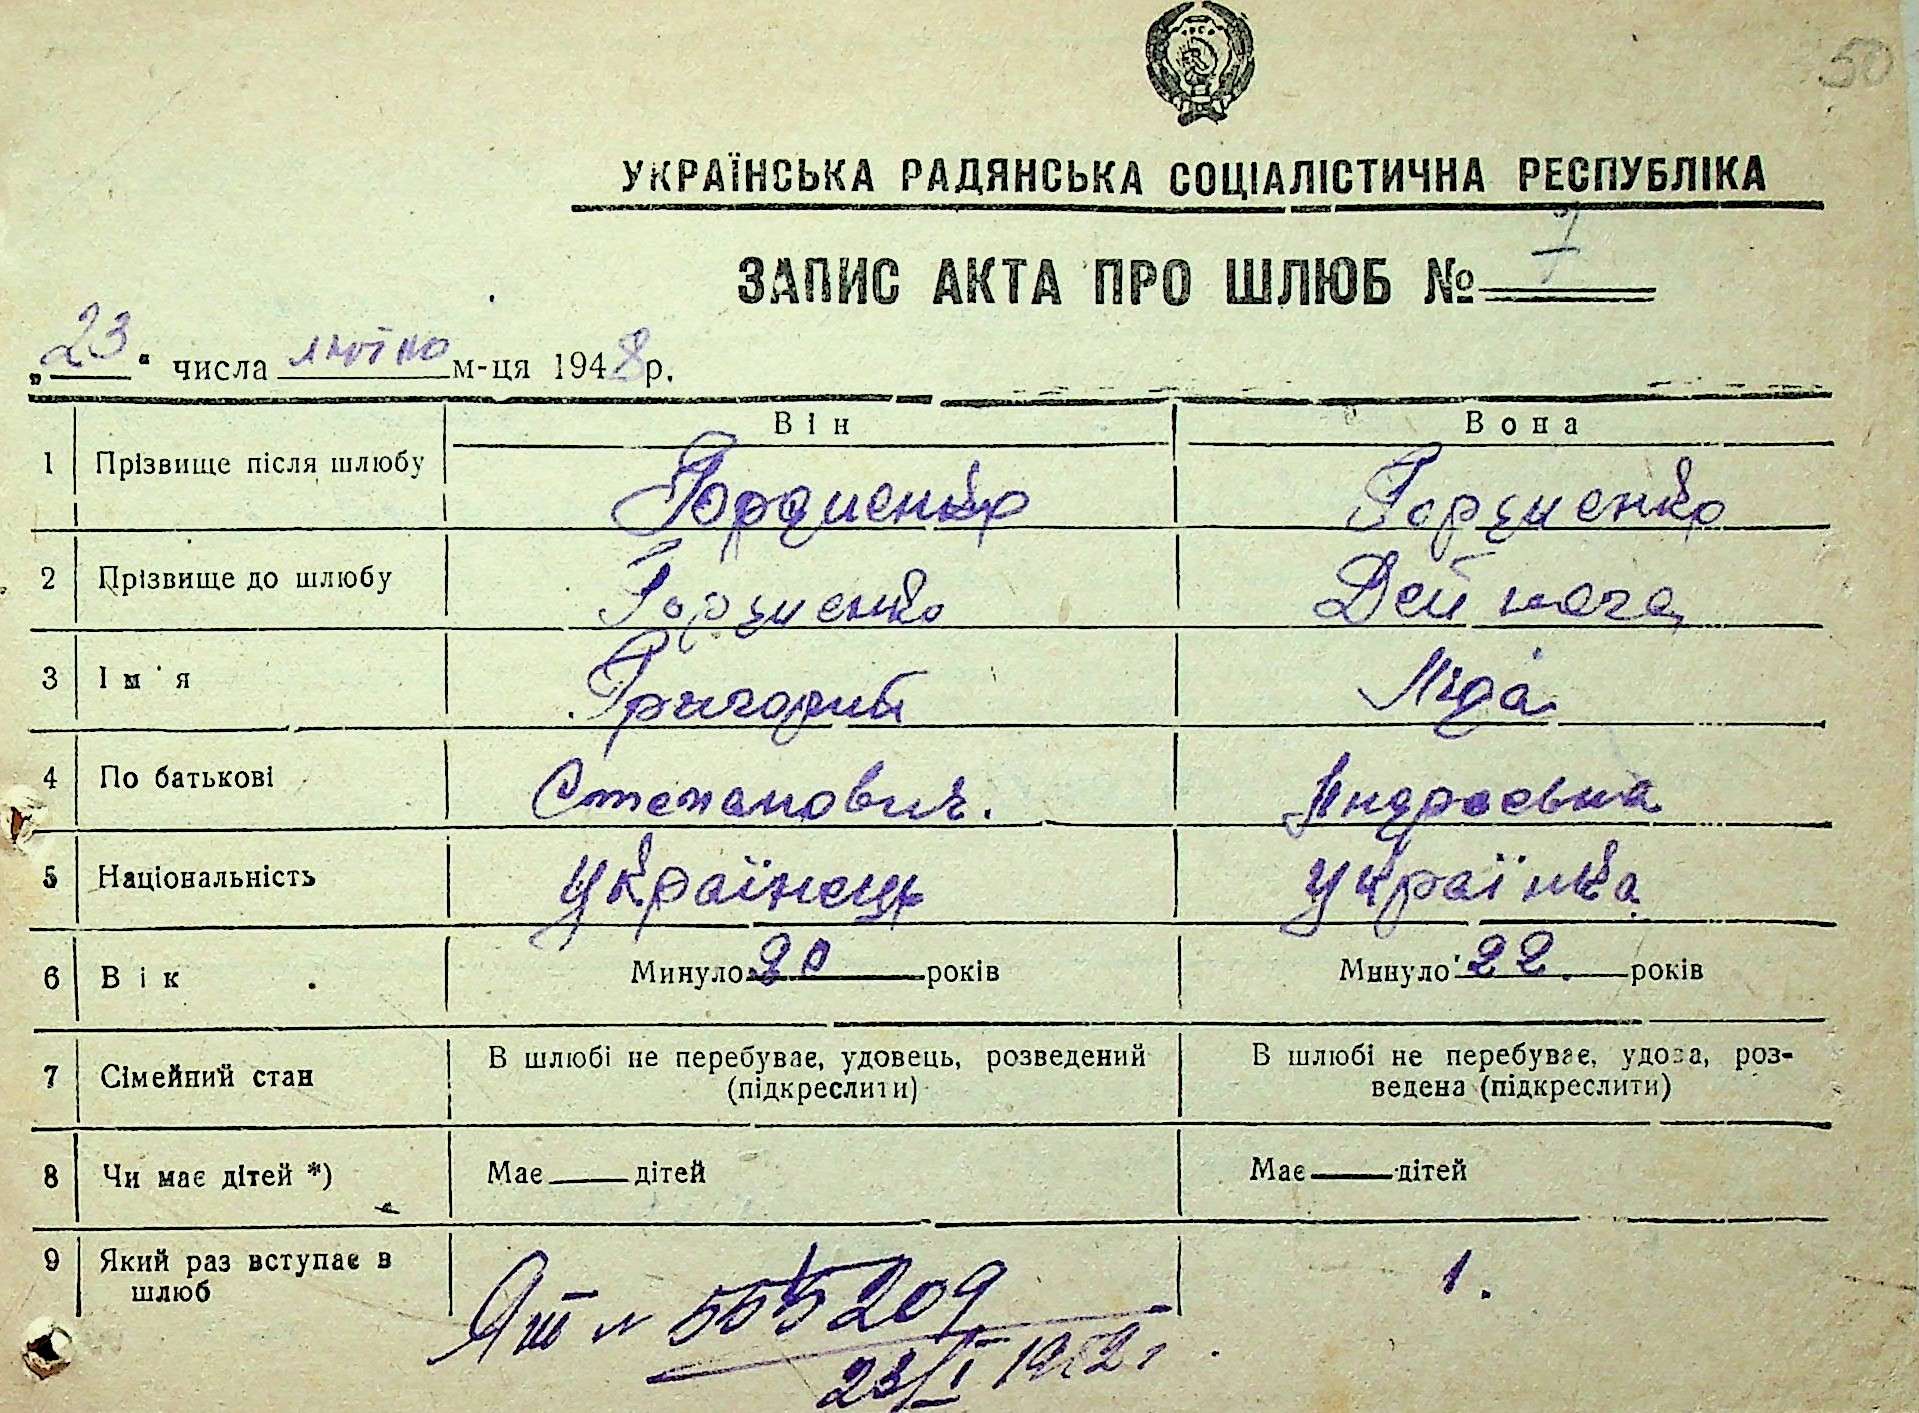 50
УКРАЇНСЬКА РАДЯНСЬКА СОЦІАЛІСТИЧНА РЕСПУБЛІКА
ЗАПИС АКТА ПРО ШЛЮБ № 7
„23“ числа лютого м-ця 1948 р.
Він Вона
1 Прізвище після шлюбу Гордиенко Гордиенко
2 Прізвище до шлюбу Гордиенко Дейнега
3 Ім'я Григорий Ліда
4 По батькові Степанович. Андреевна
5 Національність Українець Українка
6 Вік Минуло 20 років Минуло 22. років
7 Сімейний стан В шлюбі не перебуває, удовець, розведений В шлюбі не перебуває, удова, роз-
(підкреслити) ведена (підкреслити)
8 Чи має дітей *) Має дітей Має дітей
9 Який раз вступає в 1.
шлюб
№ 555209
23/I